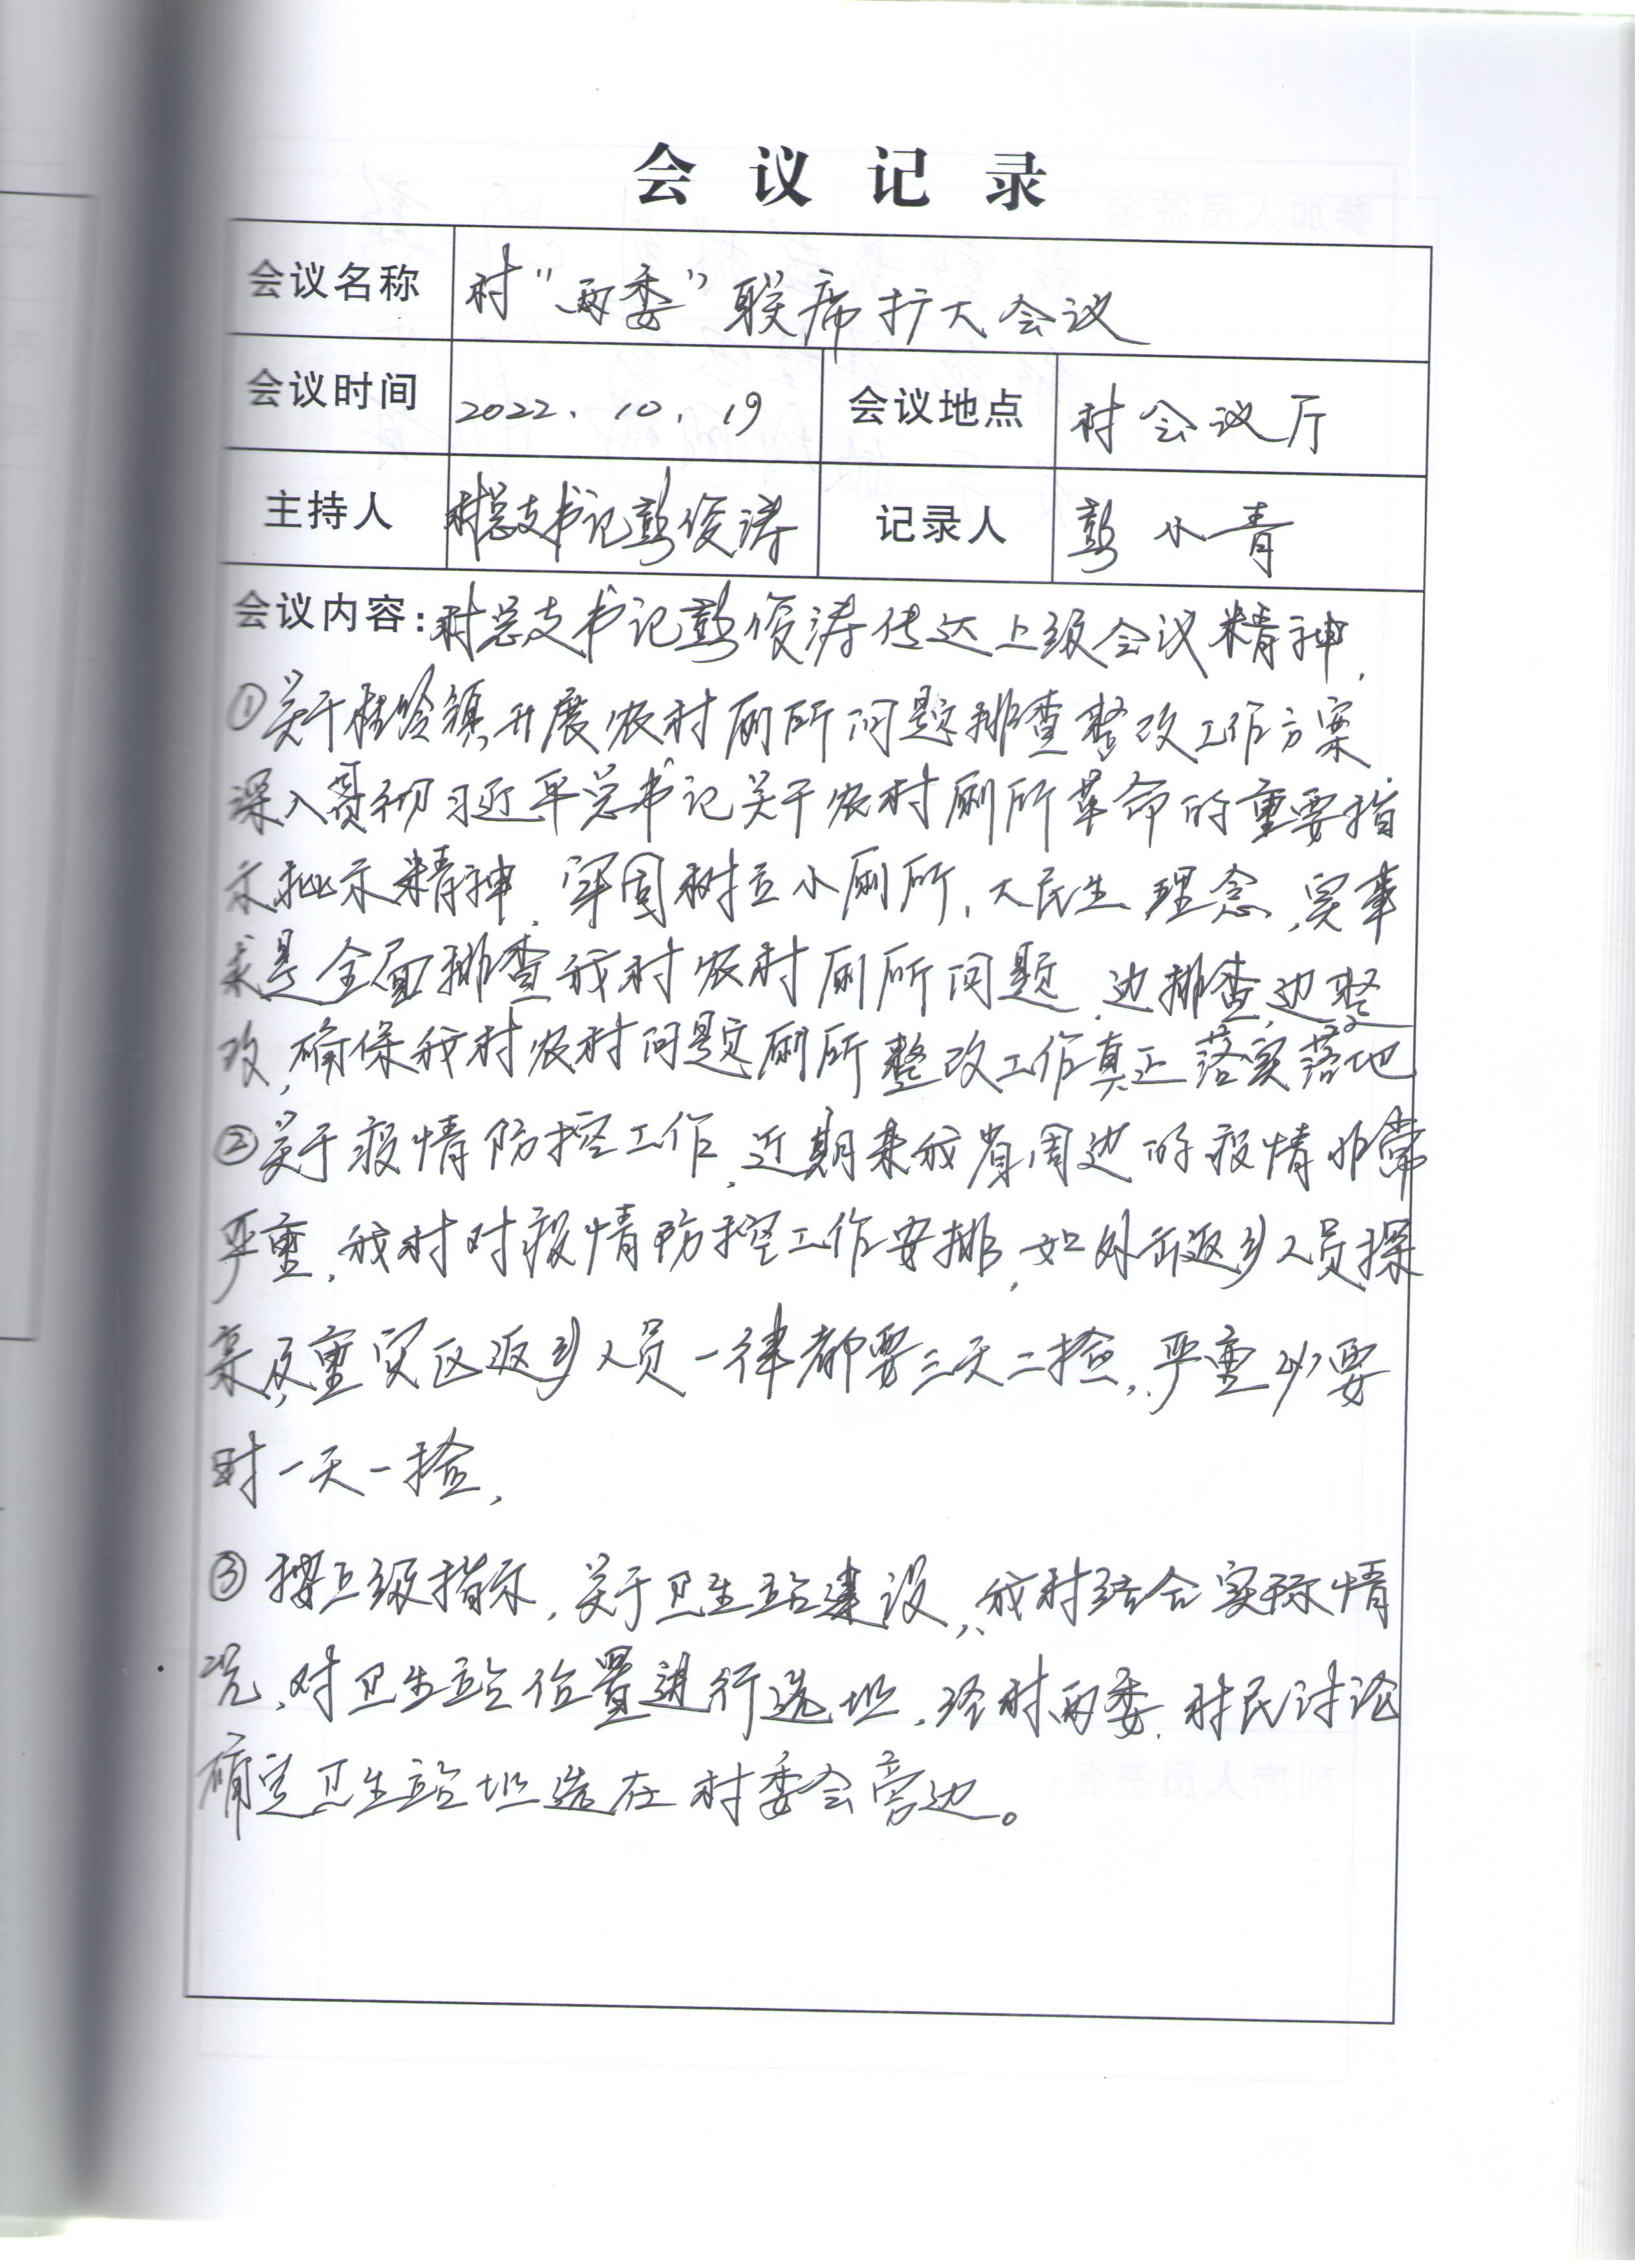 会议记录
会议名称 村“两委”联席扩大会议
会议时间 2022.10.19 会议地点 村会议厅
主持人 村总支书记彭俊涛 记录人 彭小青
会议内容：村总支书记彭俊涛传达上级会议精神，
①关于桂岭镇开展农村厕所问题排查整改工作方案
深入贯彻习近平总书记关于农村厕所革命的重要指
示批示精神，牢固树立小厕所，大民生理念，实事
求是全面排查我村农村厕所问题，边排查，边整
改，确保我村农村问题厕所整改工作真正落实落地
②关于疫情防控工作，近期来我省周边的疫情非常
严重，我村对疫情防控工作安排，如外市返乡人员探
亲及重灾区返乡人员一律都要三天二捡，严重必要
时一天一捡，
③按上级指示，关于卫生站建设，我村结合实际情
况，对卫生站位置进行选址，经村两委，村民讨论
确定卫生站址选在村委会旁边。
参加人员签名
列席人员签名：